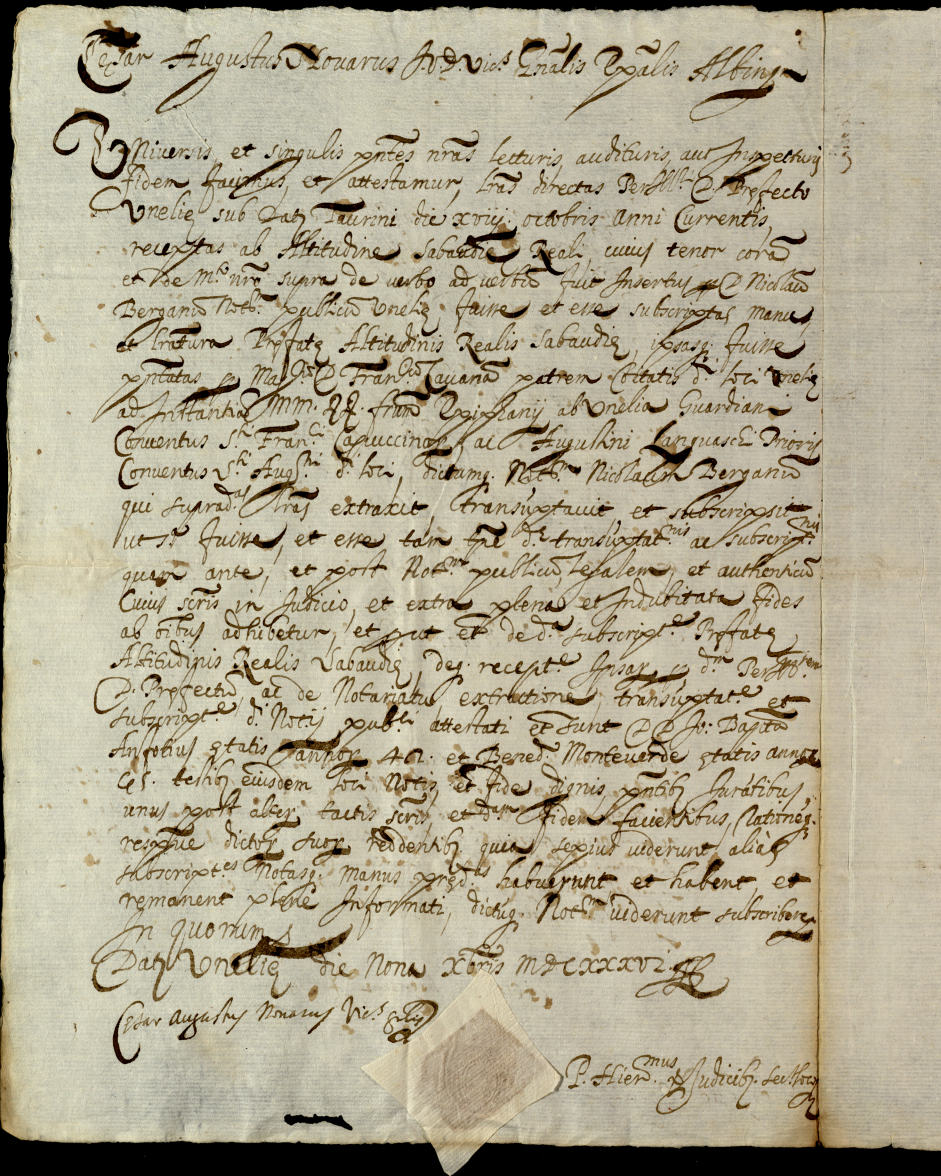 Cesar Augustus Novarus J.V.D. Vic.s Gnalis Epalis Albing.
Universis, et singulis pntes nras lecturis, audituris, aut Inspecturis
fidem facimus, et attestamur, lras directas Per D. Prefecto
Unelie sub Dat. Taurini die xviij. octobris anni Currentis,
receptas ab Altitudine Sabaudie Reali, cuius tenor
et de supra de verbo ad verbu fuit Insertus D. Nicolau
Berganu Not. publicu Unelie fuisse et esse subscriptas manu,
et lratura Prefate Altitudinis Realis Sabaudie, ipsasq. fuisse
pntatas D. Fran. patrem d. loci Unelie
ad Instantia frum Epiphanij ab Unelia Guardian
Conventus S. Fran.ci Capuccinor. ac Augustini Languasch Prioris
Conventus S. Aug.ni d. loci, dictumq. Not. Nicolaum Berganu
qui suprad.as lras extraxit transuptavit et subscripsit
ut s.a fuisse, et esse tam tpe d.e transuptat.nis ac subscript.nis
quam ante, et post Not. publicu legalem, et authenticu
Cuius scris in Judicio, et extra plena et Indubitata fides
ab oibus adhibetur, et put et de d.a subscript.e Prefate
Altitudinis Realis Sabaudie, deq. recept.e Ipsar. d.m
D. Prefectu, ac de Notariatu, extractione, transuptat.e et
subscript.e d. Notij pub.ci attestati et sunt D D Jo: Bapta
etatis annor. 42. et Bened. Monteverde etatis annor.
65. testibus eiusdem loci Notis, et fide dignis, pntibus Juratibus
unus post alter tactis scris, et d.am fidem facientibus, Rationeq.
respve dictor. suor. reddentibus, quia sepius viderunt alias
subscript.es Notasq. manus pred.as habuerunt et habent, et
remanent plene Informati, dictuq. Not. viderunt subscribere
In quorum
Dat. Unelie die Nona Xbris MDCXXXVI.
Cesar Augustus Novarus Vic.s Gnlis
P. Hier.mus